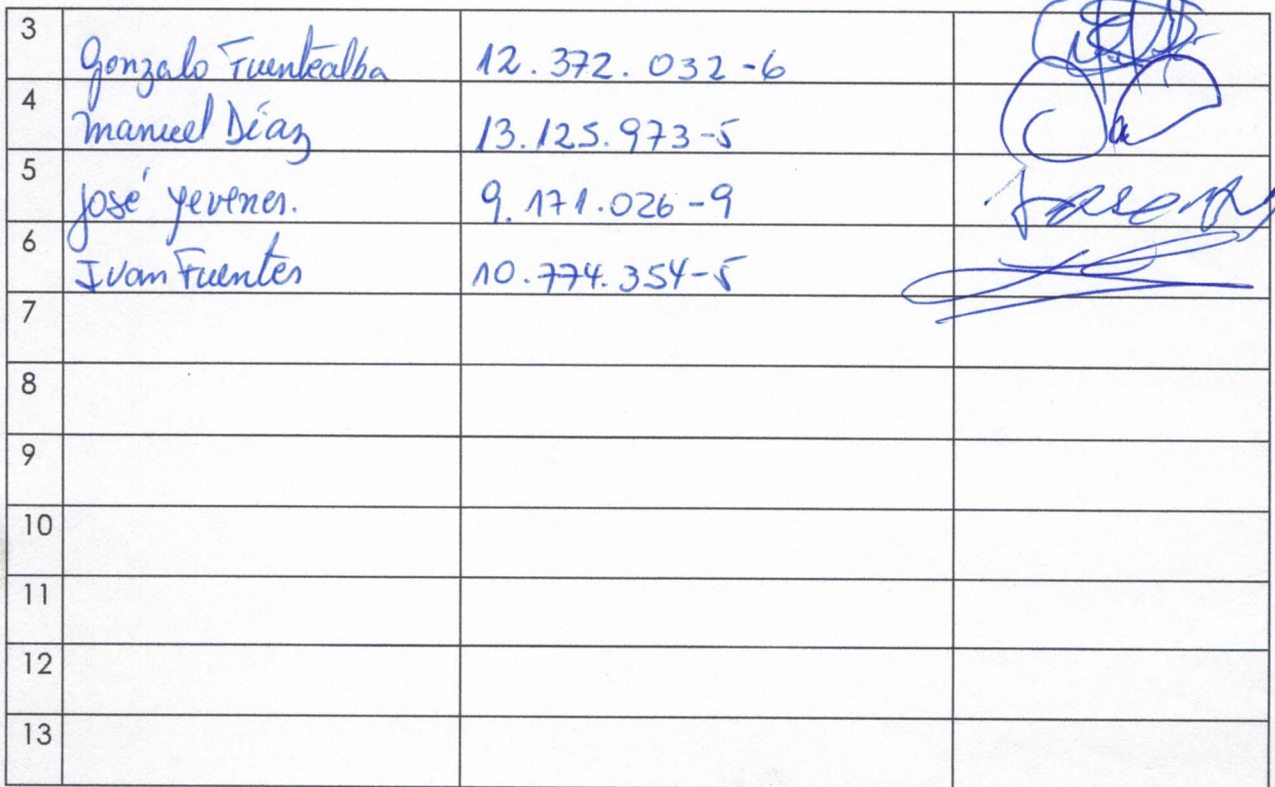 3 Gonzalo Fuentealba 12.372.032-6
4 Manuel Díaz 13.125.973-5
5 José Yevenes. 9.171.026-9
6 Ivan Fuentes 10.774.354-5
7
8
9
10
11
12
13